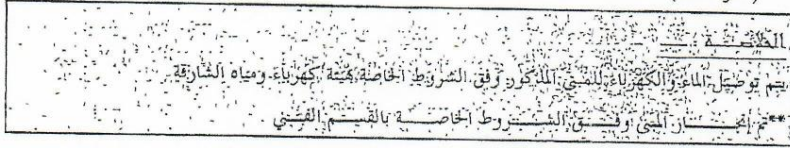 الخلاصـــة :
يتم توصيل الماء والكهرباء للمبنى المذكور وفق الشروط الخاصة بهيئة كهرباء ومياه الشارقة
**تم إنجــــاز المبنى وفــــق الشــــروط الخاصــــة بالقســـم الفـــني